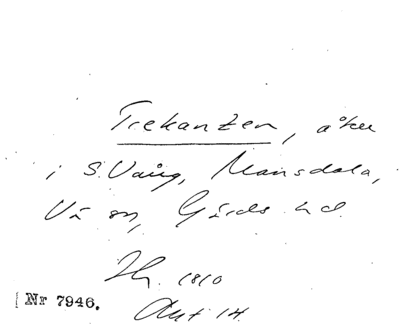 Trekanten, åker
i S. Vång, Mansdala,
Vä sn, Gärds hd.
Hy. 1810
Akt 14
Nr 7946.